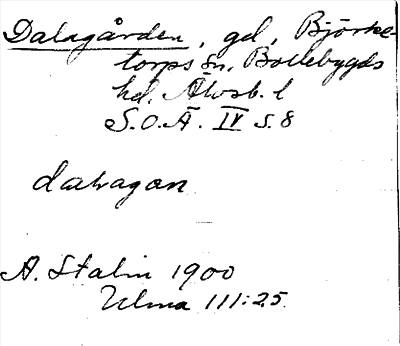 Dalagården, gd, Björke-
torps sn, Bollebygds
hd. Älvsb. l
S.O.Ä. IV s. 8
A. Stalin 1900
Ulma 111:25